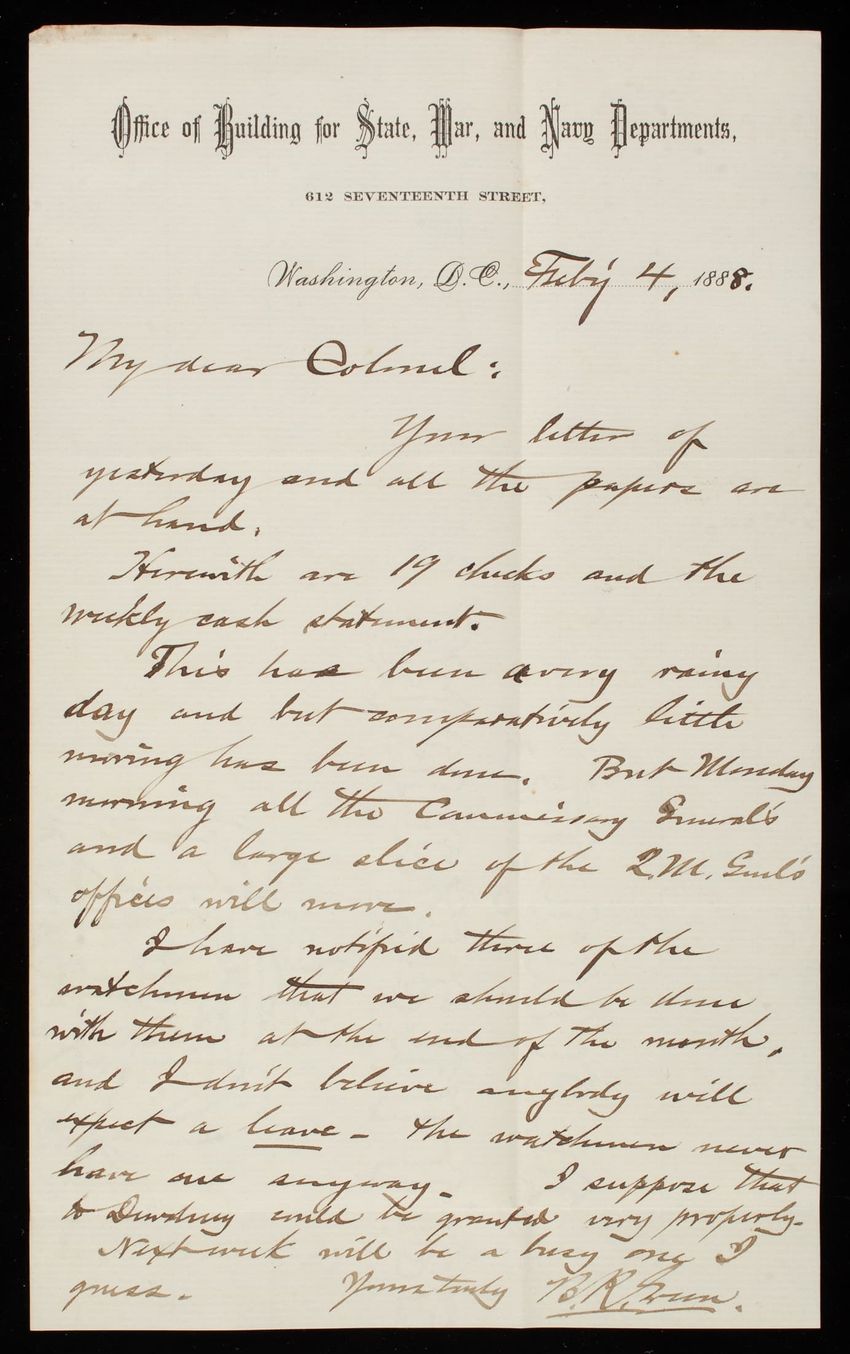 Office of Building for State, War, and Navy Departments,
612 SEVENTEENTH STREET,
Washington, D.C., Feb'y 4, 1888.
My dear Colonel:
Your letter of
yesterday and all the papers are
at hand.
Herewith are 19 checks and the
weekly cash statement.
This has been a very rainy
day and but comparatively little
moving has been done. But Monday
morning all the Commissary General's
and a large slice of the Q.M. Genl's
offices will move.
I have notified three of the
watchmen that we should be done
with them at the end of the month,
and I don't believe anybody will
expect a leave - the watchmen never
have one anyway - I suppose that
to Dewdney could be granted very properly -
Next week will be a busy one I
guess. Yours truly B.R. Green.